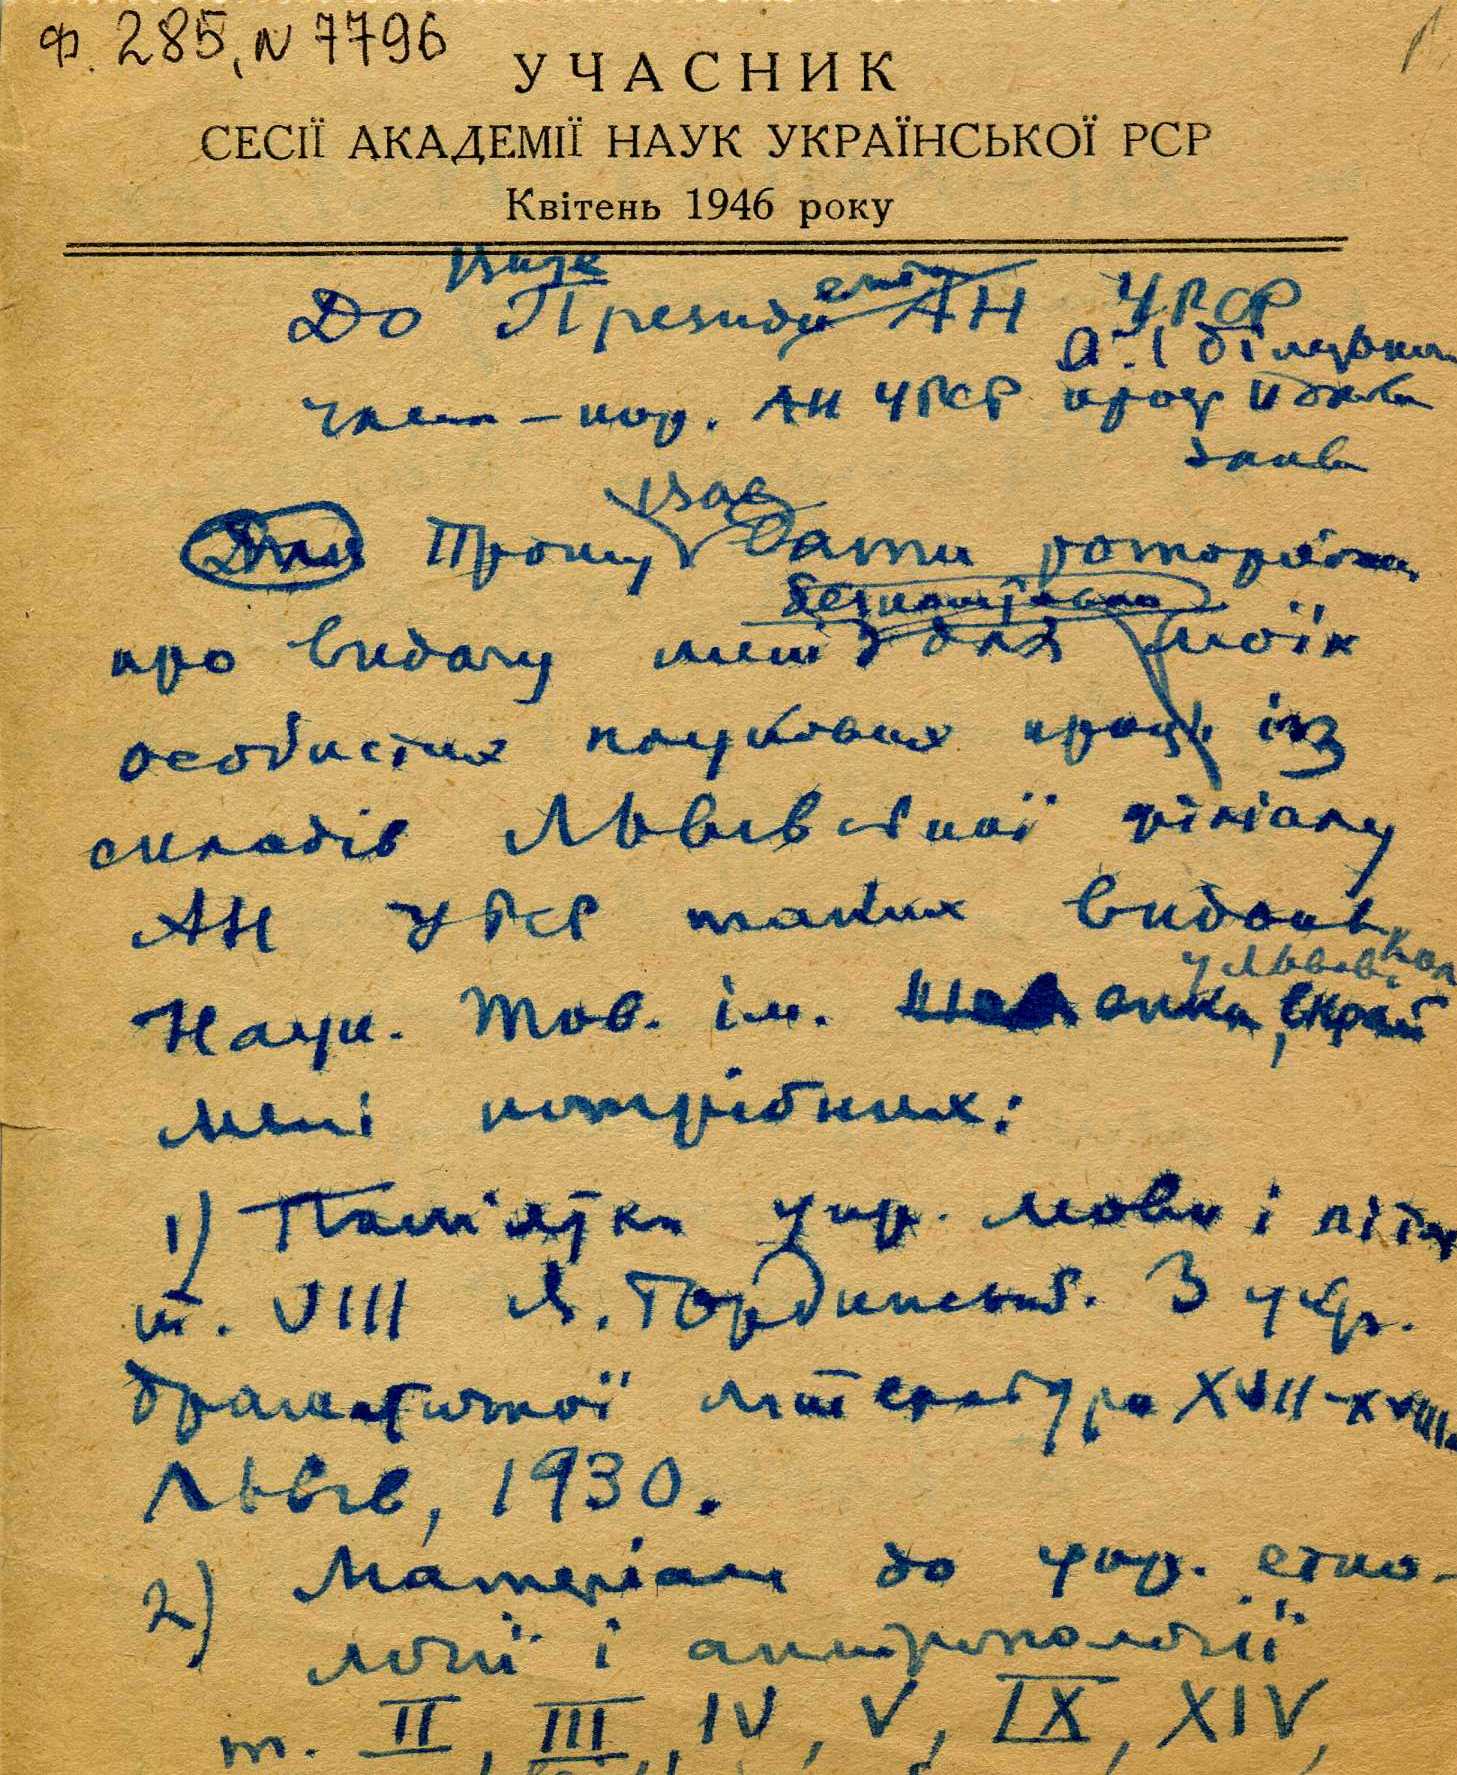 Ф. 285, N 7796
УЧАСНИК
СЕСІЇ АКАДЕМІЇ НАУК УКРАЇНСЬКОЇ РСР
Квітень 1946 року
До Президента АН УРСР
О. І Білецького
член-кор. АН УРСР проф
заява
Прошу Вас дати
про видачу мені для моїх
особистих наукових праць із
складів Львівської філіалу
АН УРСР таких видань
у Львові
Наук. Тов. ім. Шевченка, вкрай
мені потрібних:
1) Пам'ятки укр. мови і літ
т. VIII Я. Гординський. З укр.
драматичної літератури XVII-XVIII
Львів, 1930.
2) Матеріали до укр. етно-
логії і антропології
т. II, III, IV, V, IX, XIV,